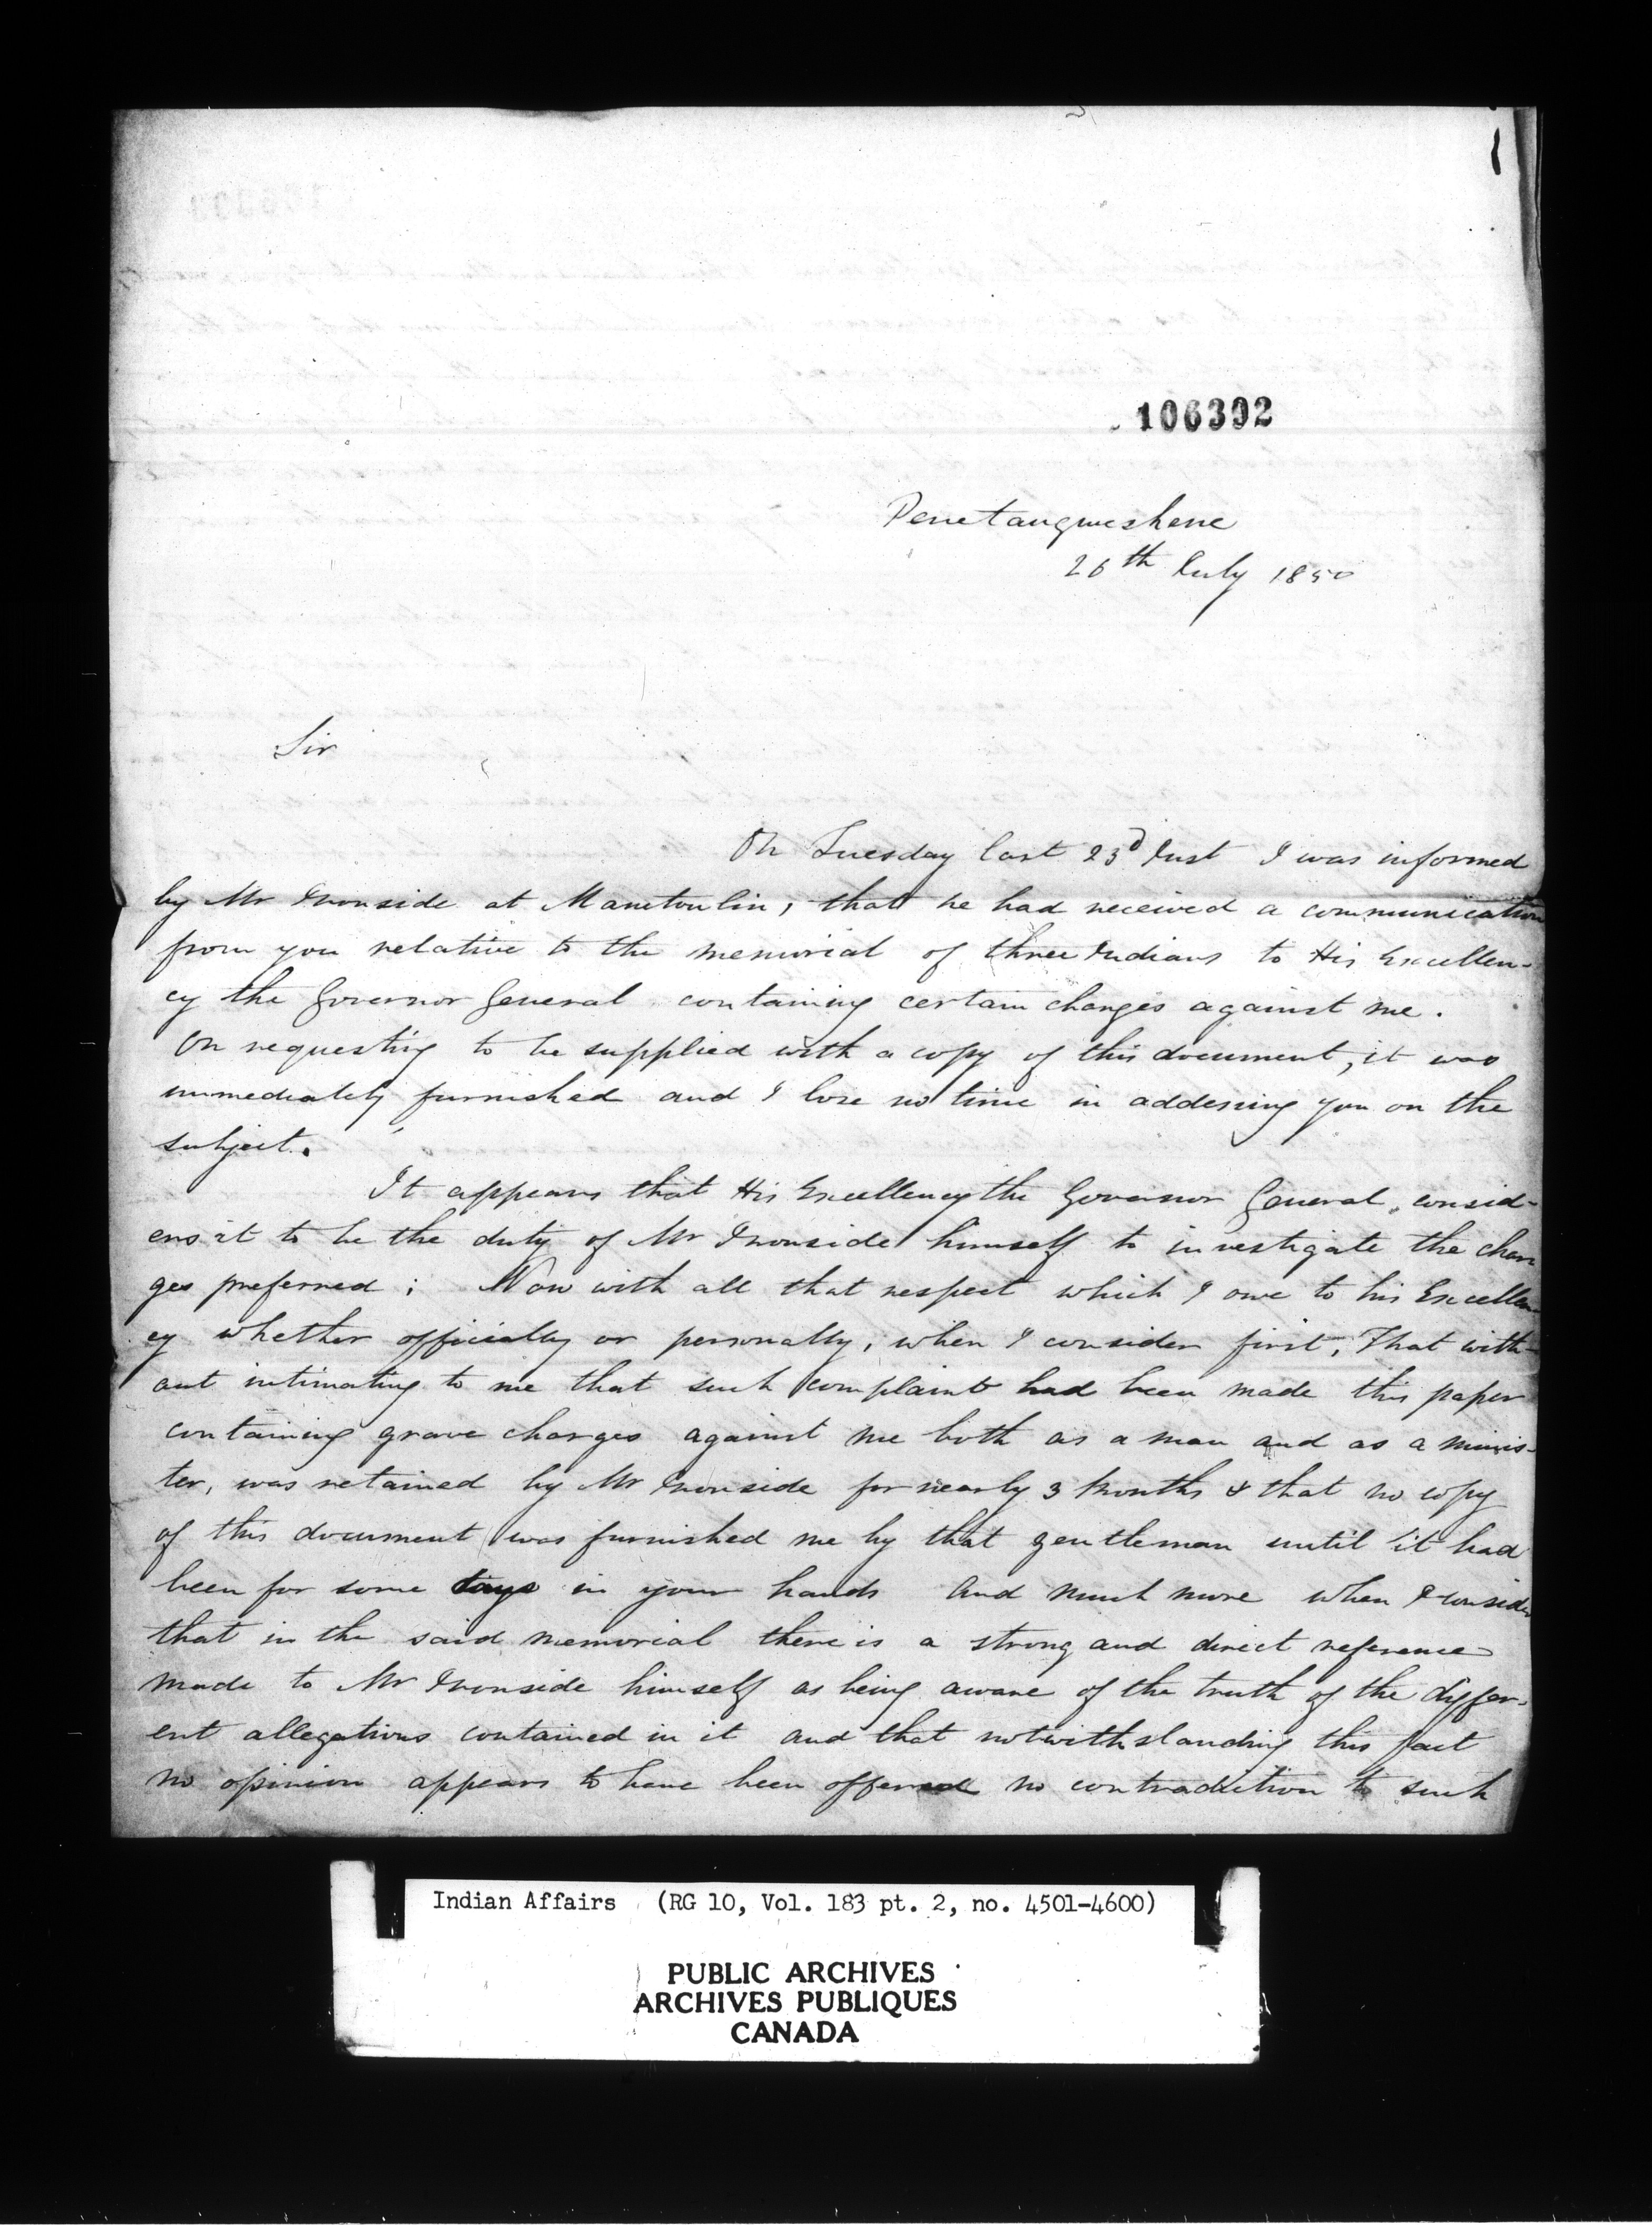 106392
Penetanguishene
26th July 1850
Sir
On Tuesday last 23d Inst I was informed
by Mr Ironside at Manetoulin, that he had received a communication
from you relative to the memorial of three Indians to His Excellen-
cy the Governor General containing certain charges against me.
On requesting to be supplied with a copy of this document, it was
immediately furnished and I lose no time in addressing you on the
subject.
It appears that His Excellency the Governor General consid-
ers it to be the duty of Mr Ironside himself to investigate the char
ges preferred; Now with all that respect which I owe to his Excellen-
cy whether officially or personally, when I consider first, That with-
out intimating to me that such complaints had been made this paper
containing grave charges against me both as a man and as a minis-
ter, was retained by Mr Ironside for nearly 3 months & that no copy
of this document was furnished me by that gentleman until it had
been for some days in your hands and much more when I consider
that in the said memorial there is a strong and direct reference
made to Mr Ironside himself as being aware of the truth of the differ-
ent allegations contained in it and that notwithstanding this fact
no opinion appears to have been offered no contradiction to such
Indian Affairs (RG 10, Vol. 183 pt. 2, no. 4501-4600)
PUBLIC ARCHIVES
ARCHIVES PUBLIQUES
CANADA